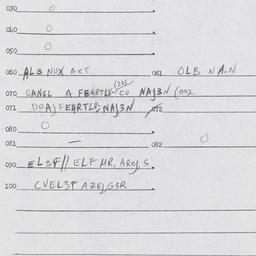 030 O
040 O
050 O
060 ALE NUX BXT 061 OLB NAN
070 OANGL A FEARTLS-CU NAJ3N (002
071 DRAJ FEARTLS, NAJ3N 072
080 O
081 — 082 O
090 EL3F// ELF MR, AROJ, S.
100 CVEL3F AZEJ, G3R